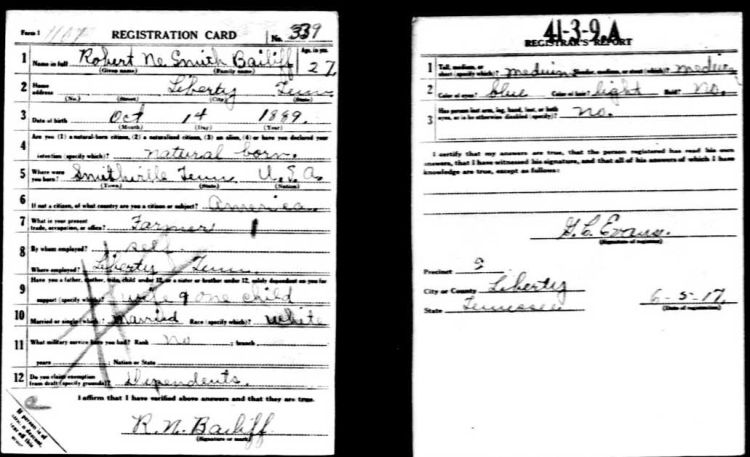 Form 1 REGISTRATION CARD No. 339
1 Name in full Robert Ne Smith Bailiff Age, in yrs.
(Given name) (Family name) 27
2 Home address Liberty Tenn
(No.) (Street) (City) (State)
3 Date of birth Oct 14 1889.
(Month) (Day) (Year)
4 Are you (1) a natural-born citizen, (2) a naturalized citizen, (3) an alien, (4) or have you declared your
intention (specify which)? natural born.
5 Where were you born? Smithville Tenn U.S.A.
(Town) (State) (Nation)
6 If not a citizen, of what country are you a citizen or subject? America
7 What is your present trade, occupation, or office? Farmer 1
8 By whom employed? self
Where employed? Liberty Tenn.
9 Have you a father, mother, wife, child under 12, or a sister or brother under 12, solely dependent on you for
support (specify which)? wife & one child
10 Married or single (which)? married Race (specify which)? white
11 What military service have you had? Rank No ; branch
years ; Nation or State
12 Do you claim exemption from draft (specify grounds)? Dependents.
I affirm that I have verified above answers and that they are true.
R. N. Bailiff
(Signature or mark)
41-3-9.A
REGISTRAR'S REPORT
1 Tall, medium, or short (specify which)? medium Slender, medium, or stout (which)? medium
2 Color of eyes? blue Color of hair? light Bald? No.
3 Has person lost arm, leg, hand, foot, or both eyes, or is he otherwise disabled (specify)? No.
I certify that my answers are true, that the person registered has read his own
answers, that I have witnessed his signature, and that all of his answers of which I have
knowledge are true, except as follows:
G. C. Evans.
(Signature of registrar)
Precinct 9
City or County Liberty
State Tennessee 6-5-17.
(Date of registration)